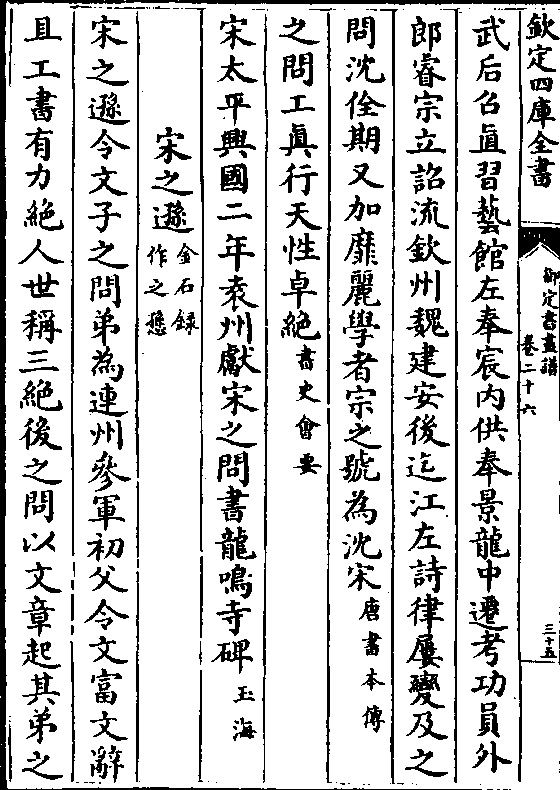 欽定四庫全書
御定書畫譜
卷二十六
三十五
武后召直習藝館左奉宸内供奉景龍中遷考功員外
郎睿宗立詔流欽州魏建安後迄江左詩律屢變及之
問沈佺期又加靡麗學者宗之號為沈宋唐書本傳
之問工真行天性卓絶書史會要
宋太平興國二年袁州獻宋之問書龍鳴寺碑玉海
宋之遜金石録作之愻
宋之遜令文子之問弟為連州參軍初父令文富文辭
且工書有力絶人世稱三絶後之問以文章起其弟之